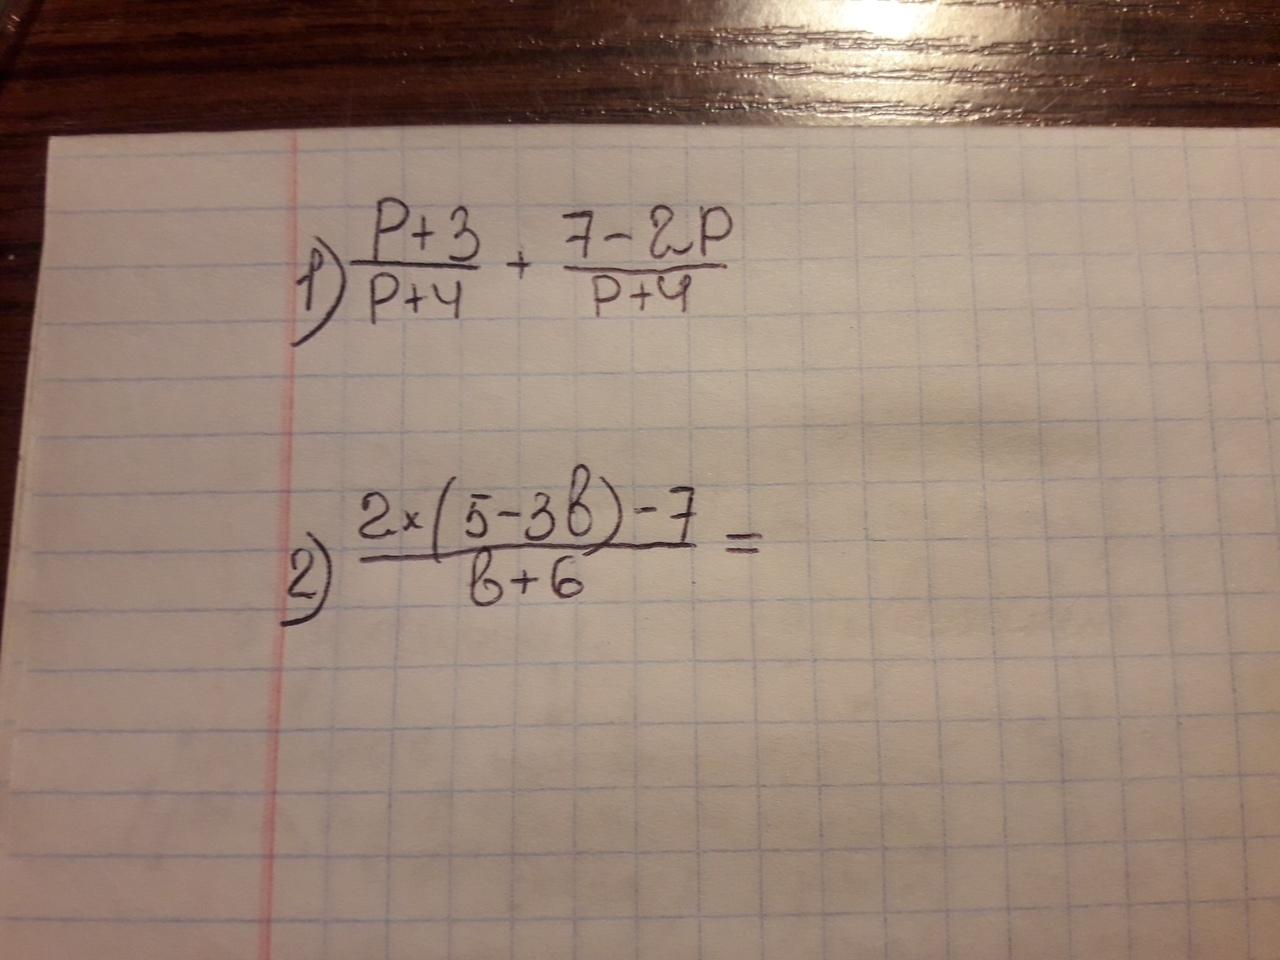 1) P+3/P+4 + 7-2P/P+4
2) 2×(5-3в)-7/в+6 =